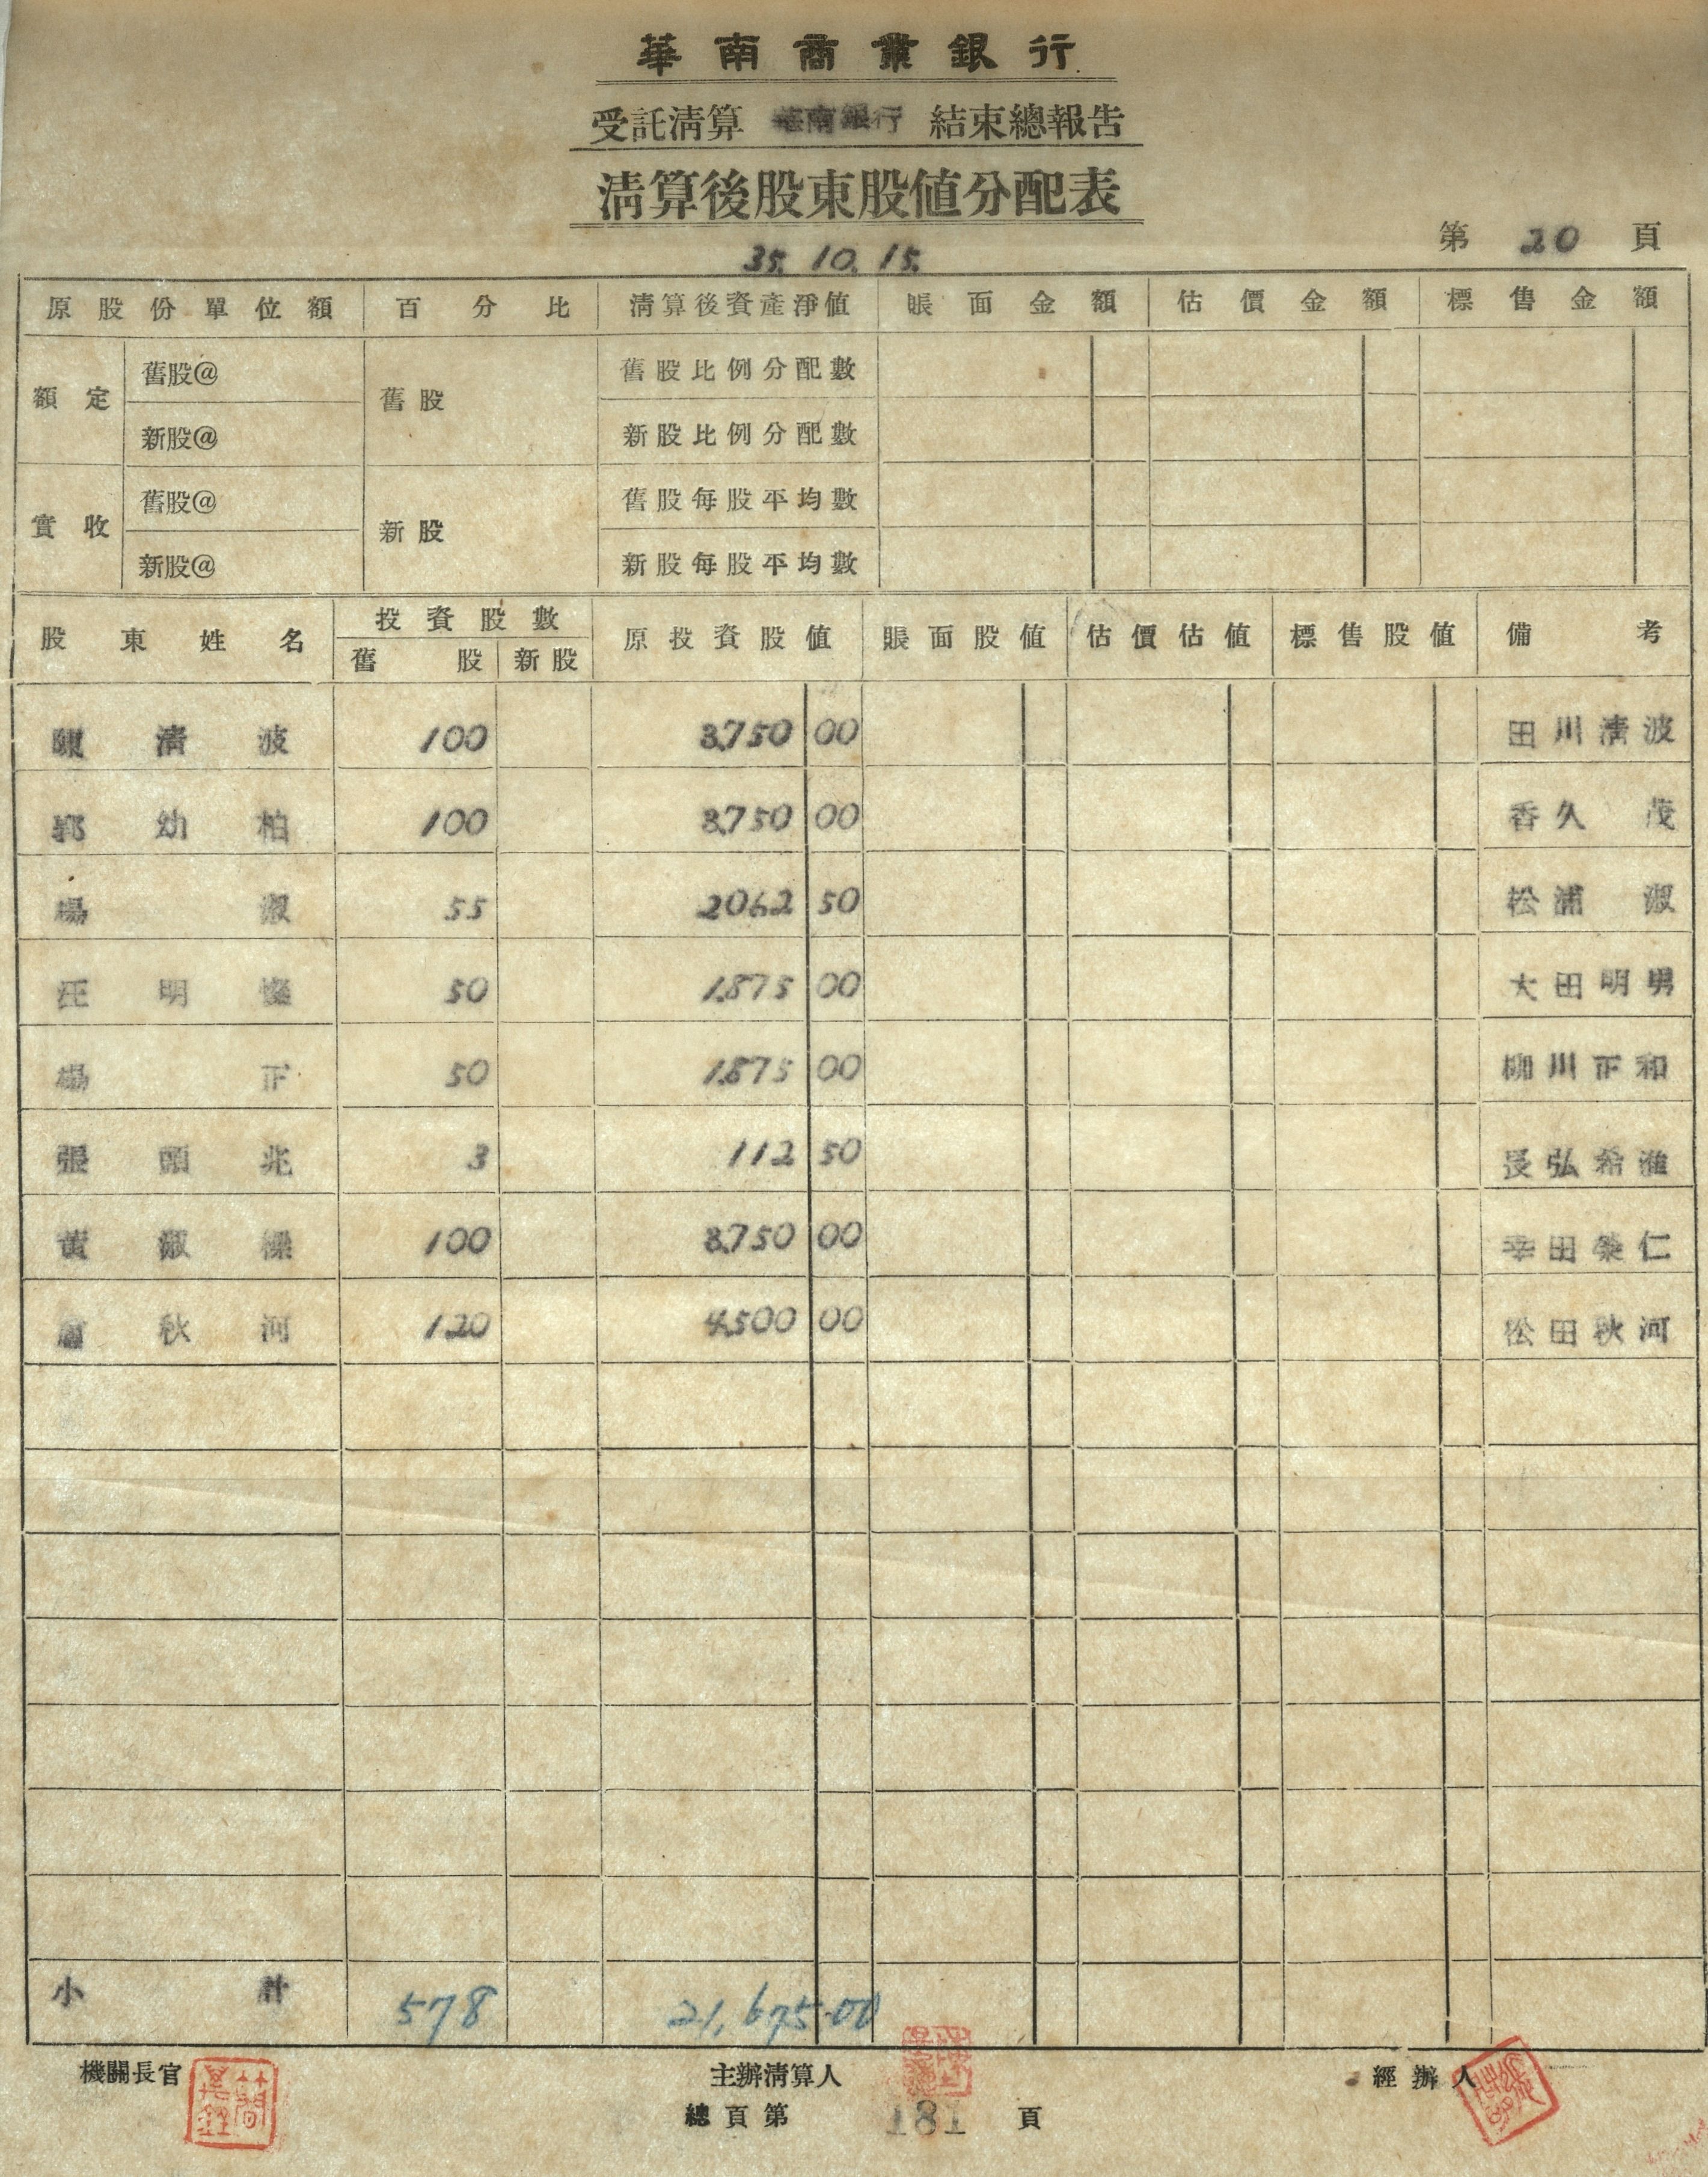 華南商業銀行
受託清算 華南銀行 結束總報告
清算後股東股值分配表
35. 10. 15.
第 20 頁
原股份單位額 百分比 清算後資產淨值 賬面金額 估價金額 標售金額
額定 舊股@ 舊股 舊股比例分配數
新股@ 新股比例分配數
實收 舊股@ 新股 舊股每股平均數
新股@ 新股每股平均數
股東姓名 投資股數 原投資股值 賬面股值 估價估值 標售股值 備考
舊股 新股
陳清波 100 3,750 00 田川清波
郭幼柏 100 3,750 00 香久茂
楊淑 55 2,062 50 松浦淑
汪明 50 1,875 00 大田明男
楊正 50 1,875 00 柳川正和
張頭兆 3 112 50 長弘希
黃淑 100 3,750 00 幸田榮仁
秋河 120 4,500 00 松田秋河
小計 578 21,675.00
機關長官 主辦清算人 經辦人
總頁第 181 頁